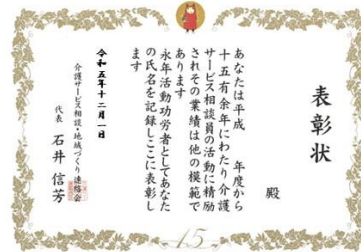 表彰状
殿
あなたは平成　年度から
十五有余年にわたり介護
サービス相談員の活動に精励
されその業績は他の模範で
あります
永年活動功労者としてあなた
の氏名を記録しここに表彰し
ます
令和五年十二月一日
介護サービス相談・地域づくり連絡会
代表 石井 信芳
15